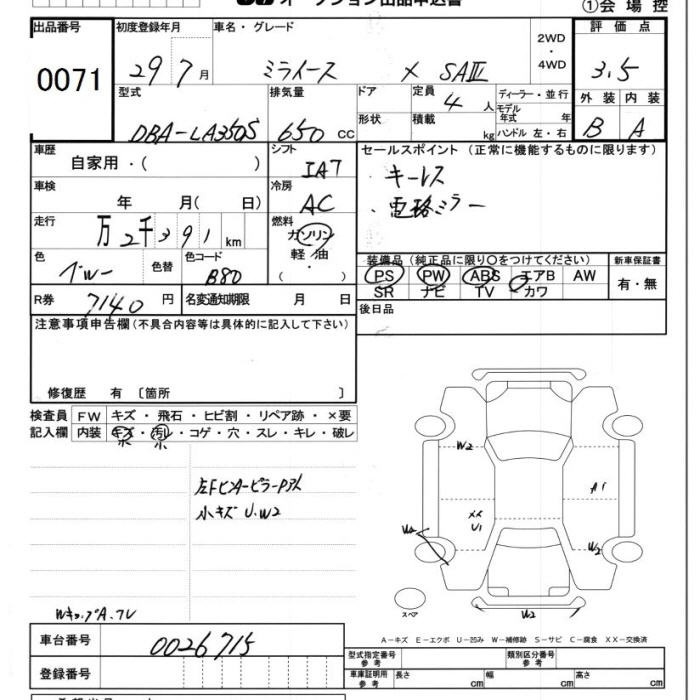 オークション出品申込書
①会場控
出品番号 初度登録年月 車名・グレード 2WD・4WD 評価点
0071 29 7月 ミライース X SAⅢ 3.5
型式 排気量 ドア 定員 4 人 ディーラー・並行 外装 内装
DBA-LA350S 650 cc 形状 積載 kg モデル年式 年 ハンドル 左・右 B A
車歴 自家用・( ) シフト IA7 セールスポイント (正常に機能するものに限ります)
車検 年 月( 日) 冷房 AC ・キーレス
・電格ミラー
走行 万2千391km 燃料 ガソリン 軽油 ・( )
色 色替 色コード B80 装備品 (純正品に限り○をつけてください) 新車保証書
PS PW ABS エアB AW 有・無
SR ナビ TV カワ
R券 7140円 名変通知期限 月 日 後日品
注意事項申告欄(不具合内容等は具体的に記入して下さい)
修復歴 有 〔箇所 〕
検査員 FW キズ・飛石・ヒビ割・リペア跡・×要
記入欄 内装 キズ・汚レ・コゲ・穴・スレ・キレ・破レ
小 小
W2
A1
小キズ U.W2
XX
U1
W2
W2
スペア
WキップA.フレ
A-キズ E-エクボ U-凹み W-補修跡 S-サビ C-腐食 XX-交換済
車台番号 0026715
型式指定番号 参考 類別区分番号 参考
登録番号 車庫証明用 参考 長さ cm 幅 cm 高さ cm